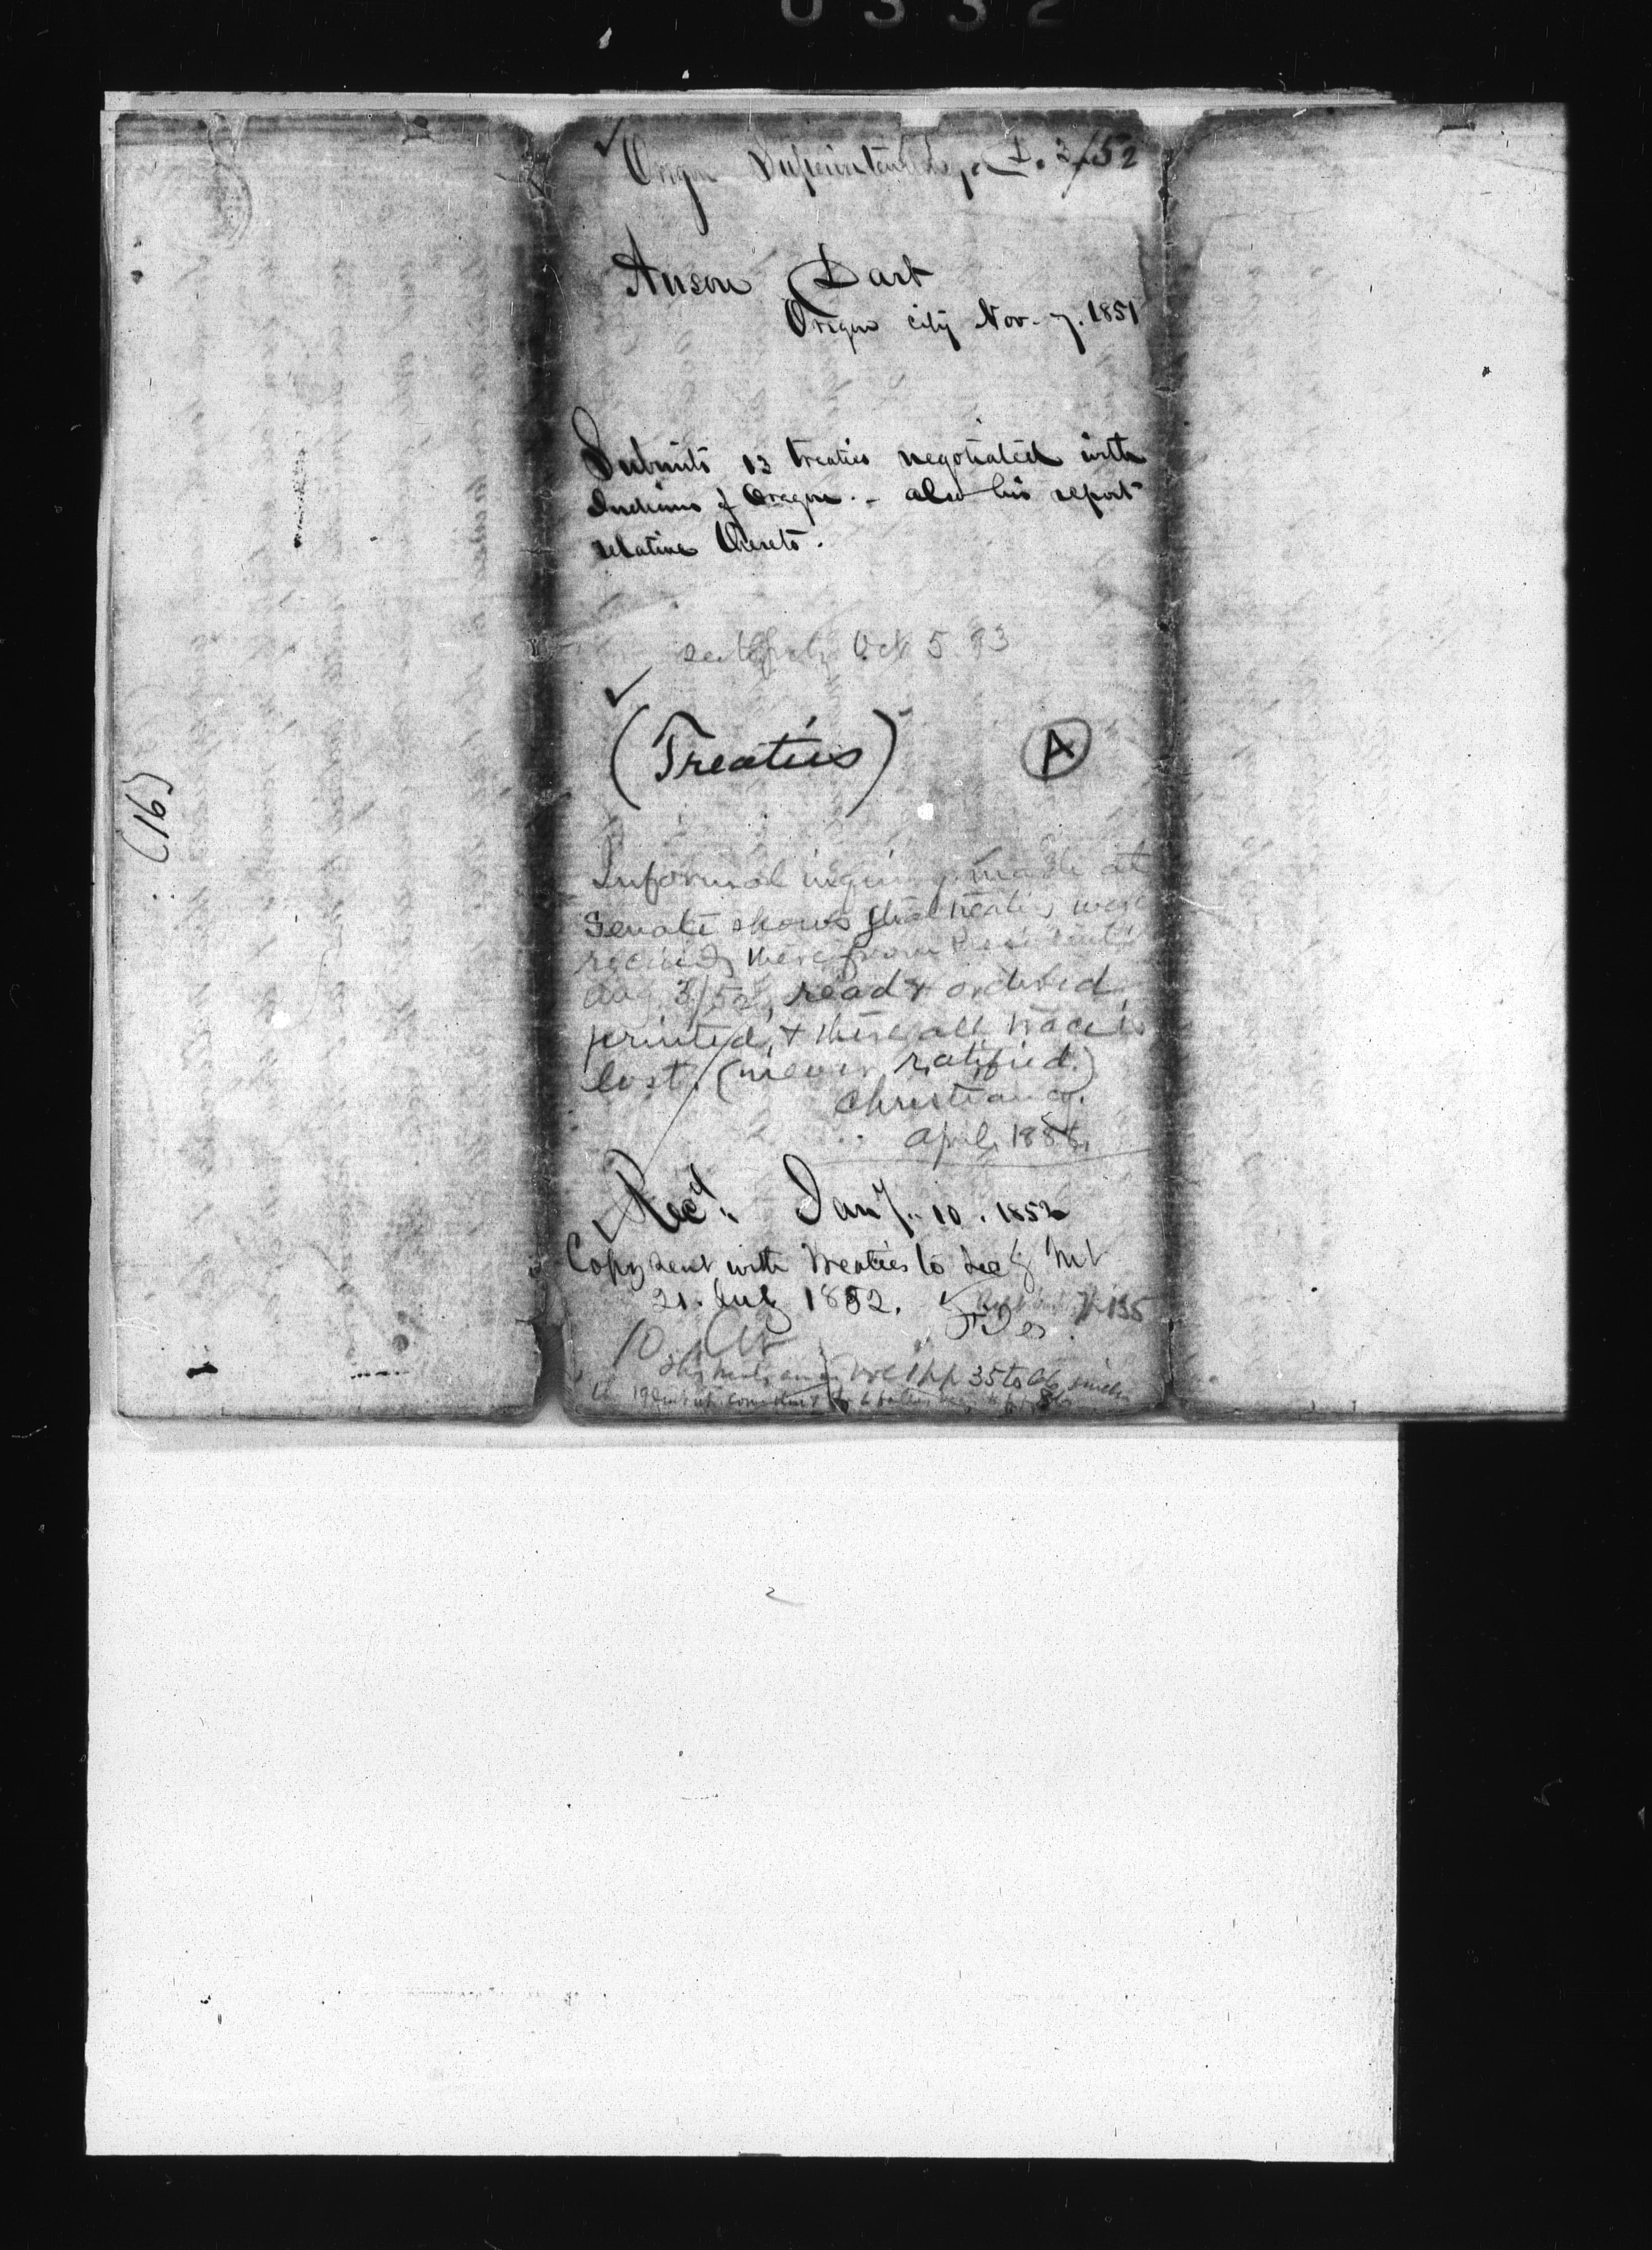 0332
Oregon Superintendency. D. 3/52
Anson Dart
Oregon City Nov. 7. 1851
Submits 13 treaties negotiated with
Indians of Oregon. - also his report
relative thereto.
Oct 5 93
(Treaties)
A
(16)
Informal inquiry made at
Senate shows that treaties were
received there from President
Aug. 3/52, read & ordered
printed, & there all trace is
lost. (never ratified.)
April, 1888.
Recd. Jany. 10. 1852
Copy sent with treaties to Secy Int
21. July 1852.
p 135
10
Vol 1 pp 35 to